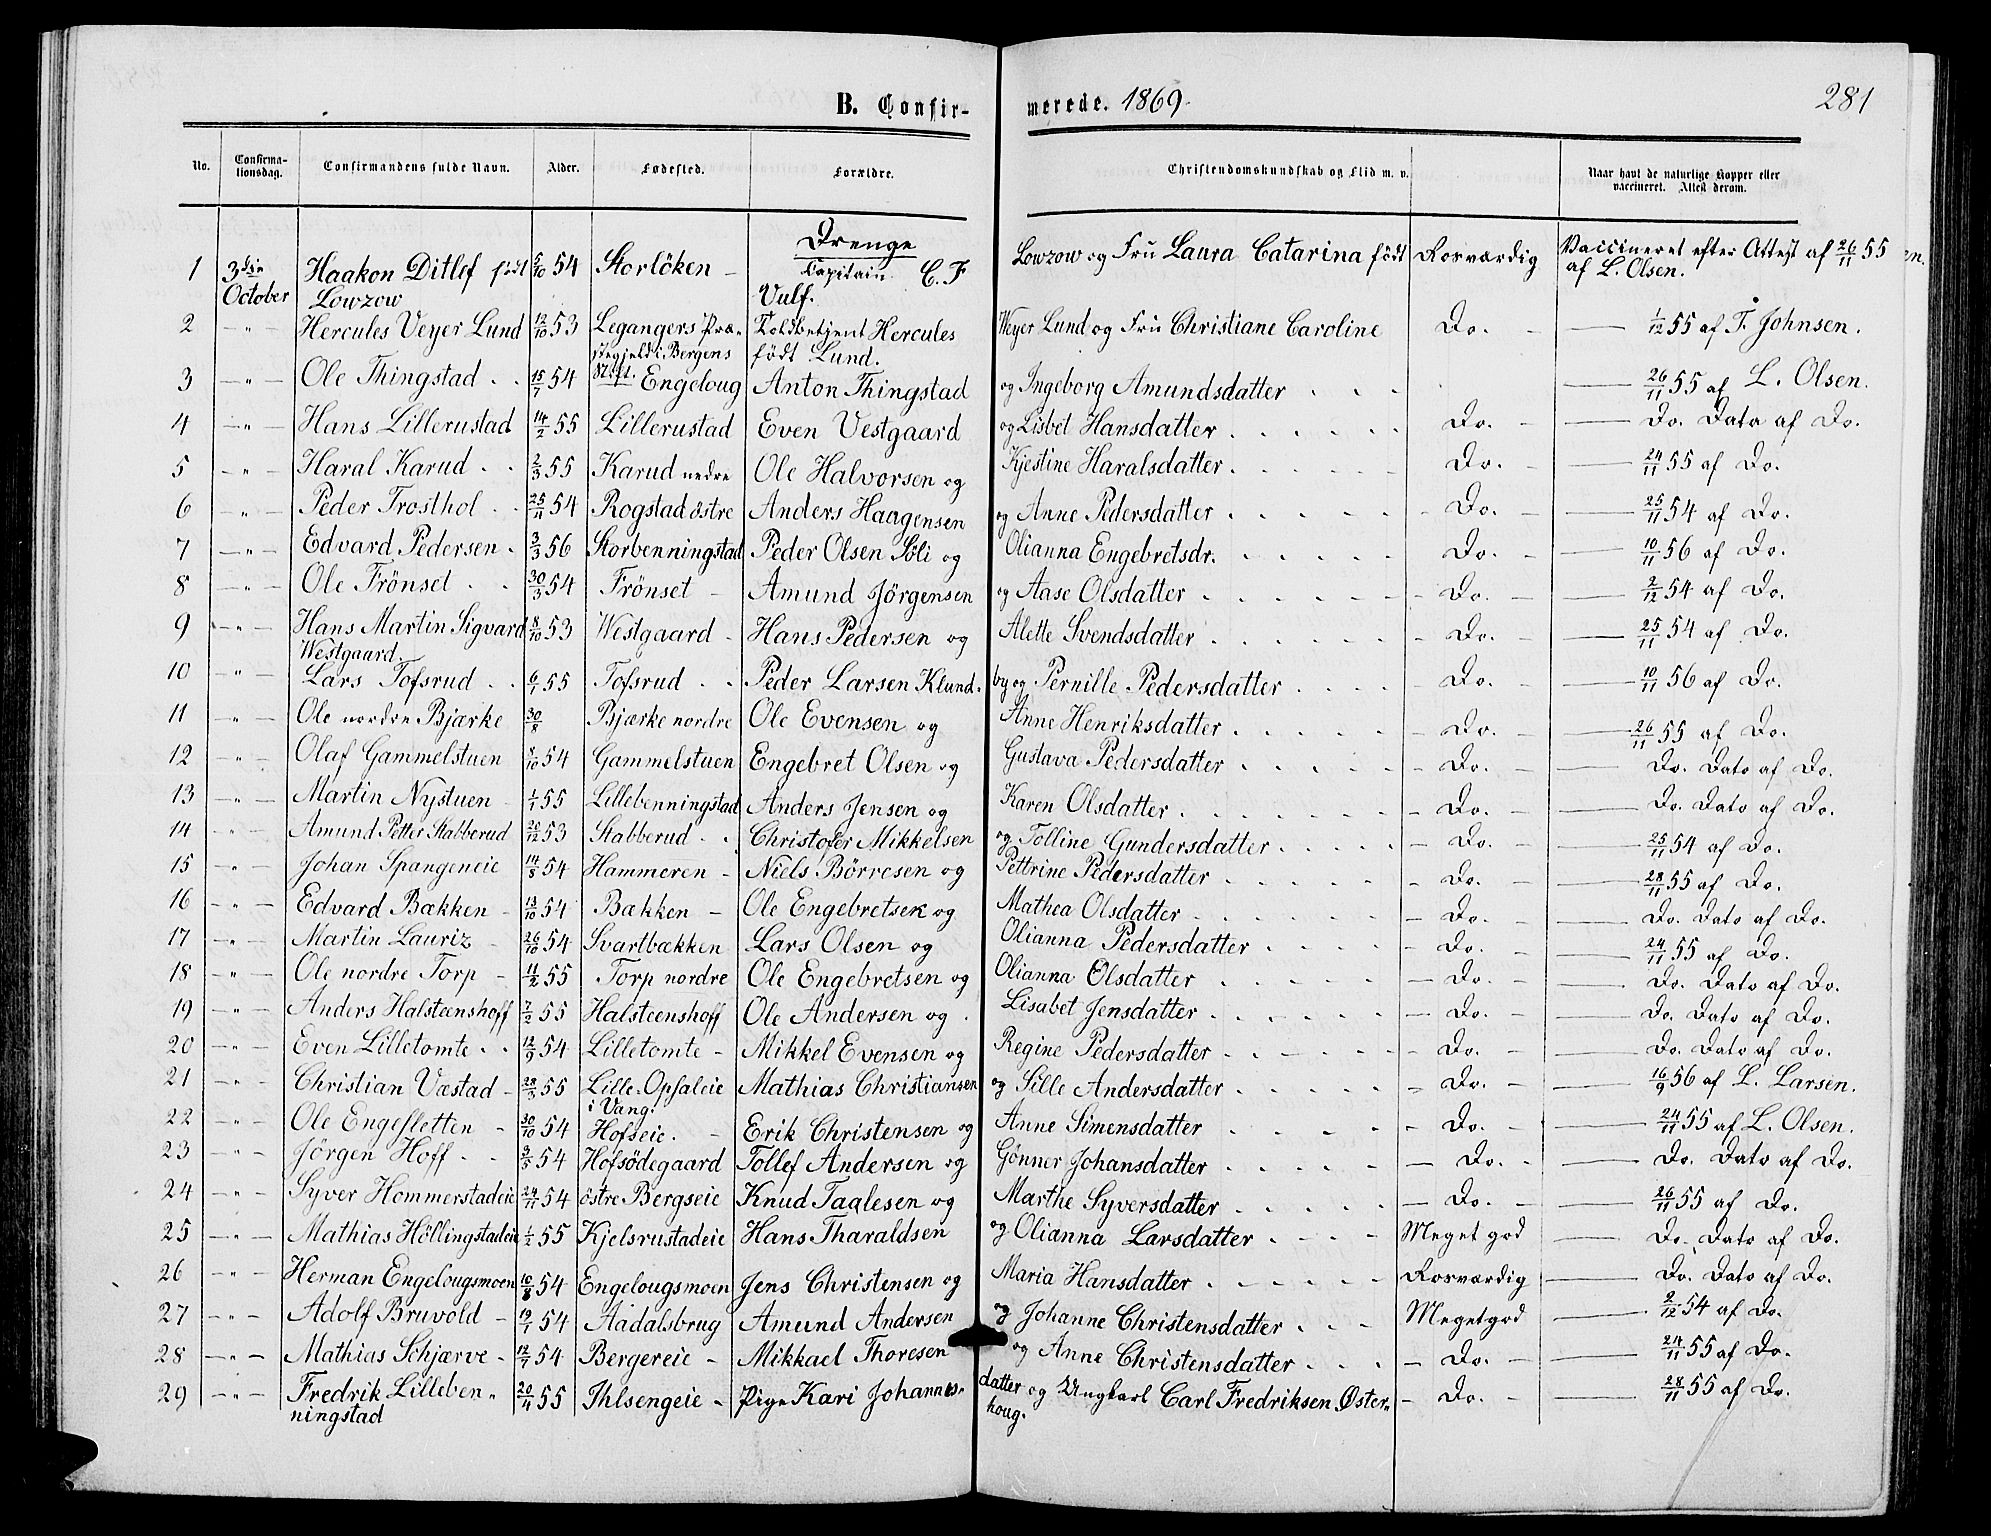 B. Confir- merede. 1869. 281
No. Confirma- tionsdag. Confirmandens fulde Navn. Alder. Fødested. Forældre. Christendomskundskab og Flid m. v. Naar havt de naturlige Kopper eller vaccineret. Attest derom.
Drenge
1 3die October Haakon Ditlef født Lowzow 5/10 54 Storlöken – Capitain C. F Lowzow og Frü Laura Catarina født Vulf. Rosværdig Vaccineret efter Attest af 26/11 55 af L. Olsen.
2 –"– Hercules Veyer Lund 12/10 53 Legangers Præstegjeld i Bergens Stift. Toldbetjent Hercules Weyer Lund og Frü Christiane Caroline født Lund. Do. – 1/12 55 af T. Johnsen.
3 –"– Ole Thingstad 15/7 54 Engeloug Anton Thingstad og Ingeborg Amundsdatter – 26/11 55 af L. Olsen.
4 –"– Hans Lillerustad 14/2 55 Lillerustad Even Vestgaard og Lisbet Hansdatter Do. – Do. Dato af Do.
5 –"– Haral Karud 2/3 55 Karud nedre Ole Halvorsen og Kjestine Haralsdatter Do. – 24/11 55 af Do.
6 –"– Peder Trosthol 25/11 54 Rogstad östre Anders Haagensen og Anne Pedersdatter Do. – 25/11 54 af Do.
7 –"– Edvard Pedersen 3/3 56 Storbenningstad Peder Olsen Söli og Olianna Engebretsdr. Do. – 10/11 56 af Do.
8 –"– Ole Frönset 30/3 54 Frönset – Amund Jörgensen og Aase Olsdatter Do. – 2/12 54 af Do.
9 –"– Hans Martin Sigvard Westgaard. 8/10 53 Westgaard – Hans Pedersen og Alette Svendsdatter Do. – 25/11 54 af Do.
10 –"– Lars Tofsrud 6/1 55 Tofsrud Peder Larsen Klundby og Pernille Pedersdatter Do. – 10/11 56 af Do.
11 –"– Ole nordre Bjærke 30/8 Bjærke nordre Ole Evensen og Anne Henriksdatter Do. – 26/11 55 af Do.
12 –"– Olaf Gammelstuen 8/10 54 Gammelstuen Engebret Olsen og Gustava Pedersdatter Do. – Do. Dato af Do.
13 –"– Martin Nystuen 1/1 55 Lillebenningstad Anders Jensen og Karen Olsdatter Do. – Do. Dato af Do.
14 –"– Amund Petter Stabberud 20/12 53 Stabberud Christofer Mikkelsen og Tolline Gundersdatter Do. – 25/11 54 af Do.
15 –"– Johan Spangeneie 14/8 54 Hammeren – Niels Börresen og Pettrine Pedersdatter Do. – 28/11 55 af Do.
16 –"– Edvard Bækken 13/10 54 Bækken – Ole Engebretsen og Mathea Olsdatter Do. – Do. Dato af Do.
17 –"– Martin Lauriz 26/10 54 Svartbækken Lars Olsen og Olianna Pedersdatter Do. – 24/11 55 af Do.
18 –"– Ole nordre Torp 11/2 55 Torp nordre Ole Engebretsen og Olianna Olsdatter Do. – Do. Dato af Do.
19 –"– Anders Halsteenshoff 7/2 55 Halsteenshoff Ole Andersen og Lisabet Jensdatter Do. – Do. Dato af Do.
20 –"– Even Lilletomte 12/9 54 Lilletomte – Mikkel Evensen og Regine Pedersdatter Do. – Do. Dato af Do.
21 –"– Christian Væstad 28/3 55 Lille-Opsaleie i Vang. Mathias Christiansen og Sille Andersdatter Do. – 16/9 56 af L. Larsen.
22 –"– Ole Engesletten 30/10 54 Hofseie. – Erik Christensen og Anne Simensdatter Do. – 24/11 55 af L. Olsen.
23 –"– Jørgen Hoff 3/5 54 Hofsödegaard Tollef Andersen og Gønner Johansdatter Do. – Do. Dato af Do.
24 –"– Syver Hommerstadeie 24/11 54 östre Bergseie Knud Taalesen og Marthe Syversdatter Do. – 26/11 55 af Do.
25 –"– Mathias Höllingstadeie 1/2 55 Kjelsrustadeie Hans Tharaldsen og Olianna Larsdatter Meget god – Do. Dato af Do.
26 –"– Herman Engelougsmoen 10/8 54 Engelougsmoen Jens Christensen og Maria Hansdatter Rosværdig – Do. Dato af Do.
27 –"– Adolf Bruvold 19/1 54 Aadalsbrug Amund Andersen og Johanne Christensdatter Meget god – 2/12 54 af Do.
28 –"– Mathias Schjærve 12/7 54 Bergereie – Mikkael Thoresen og Anne Christensdatter Do. – 24/11 55 af Do.
29 –"– Fredrik Lillebenningstad 20/4 55 Ihlsengeie Pige Kari Johannesdatter og Ungkarl Carl Fredriksen Østerhoug. Do. – 28/11 55 af Do.